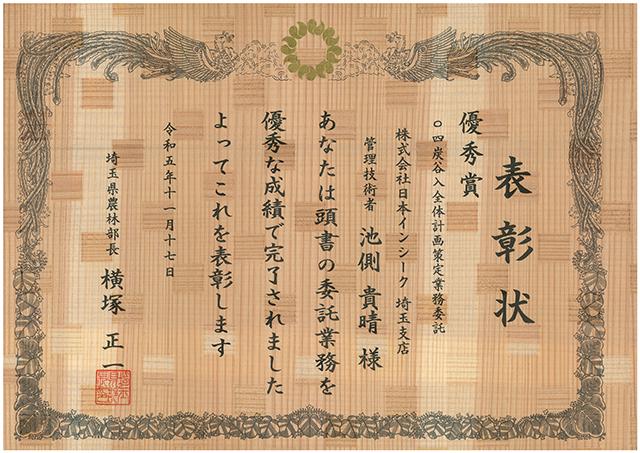 表彰状
優秀賞
〇四炭谷入全体計画策定業務委託
株式会社日本インシーク 埼玉支店
管理技術者 池側 貴晴 様
あなたは頭書の委託業務を
優秀な成績で完了されました
よってこれを表彰します
令和五年十一月十七日
埼玉県農林部長 横塚 正一